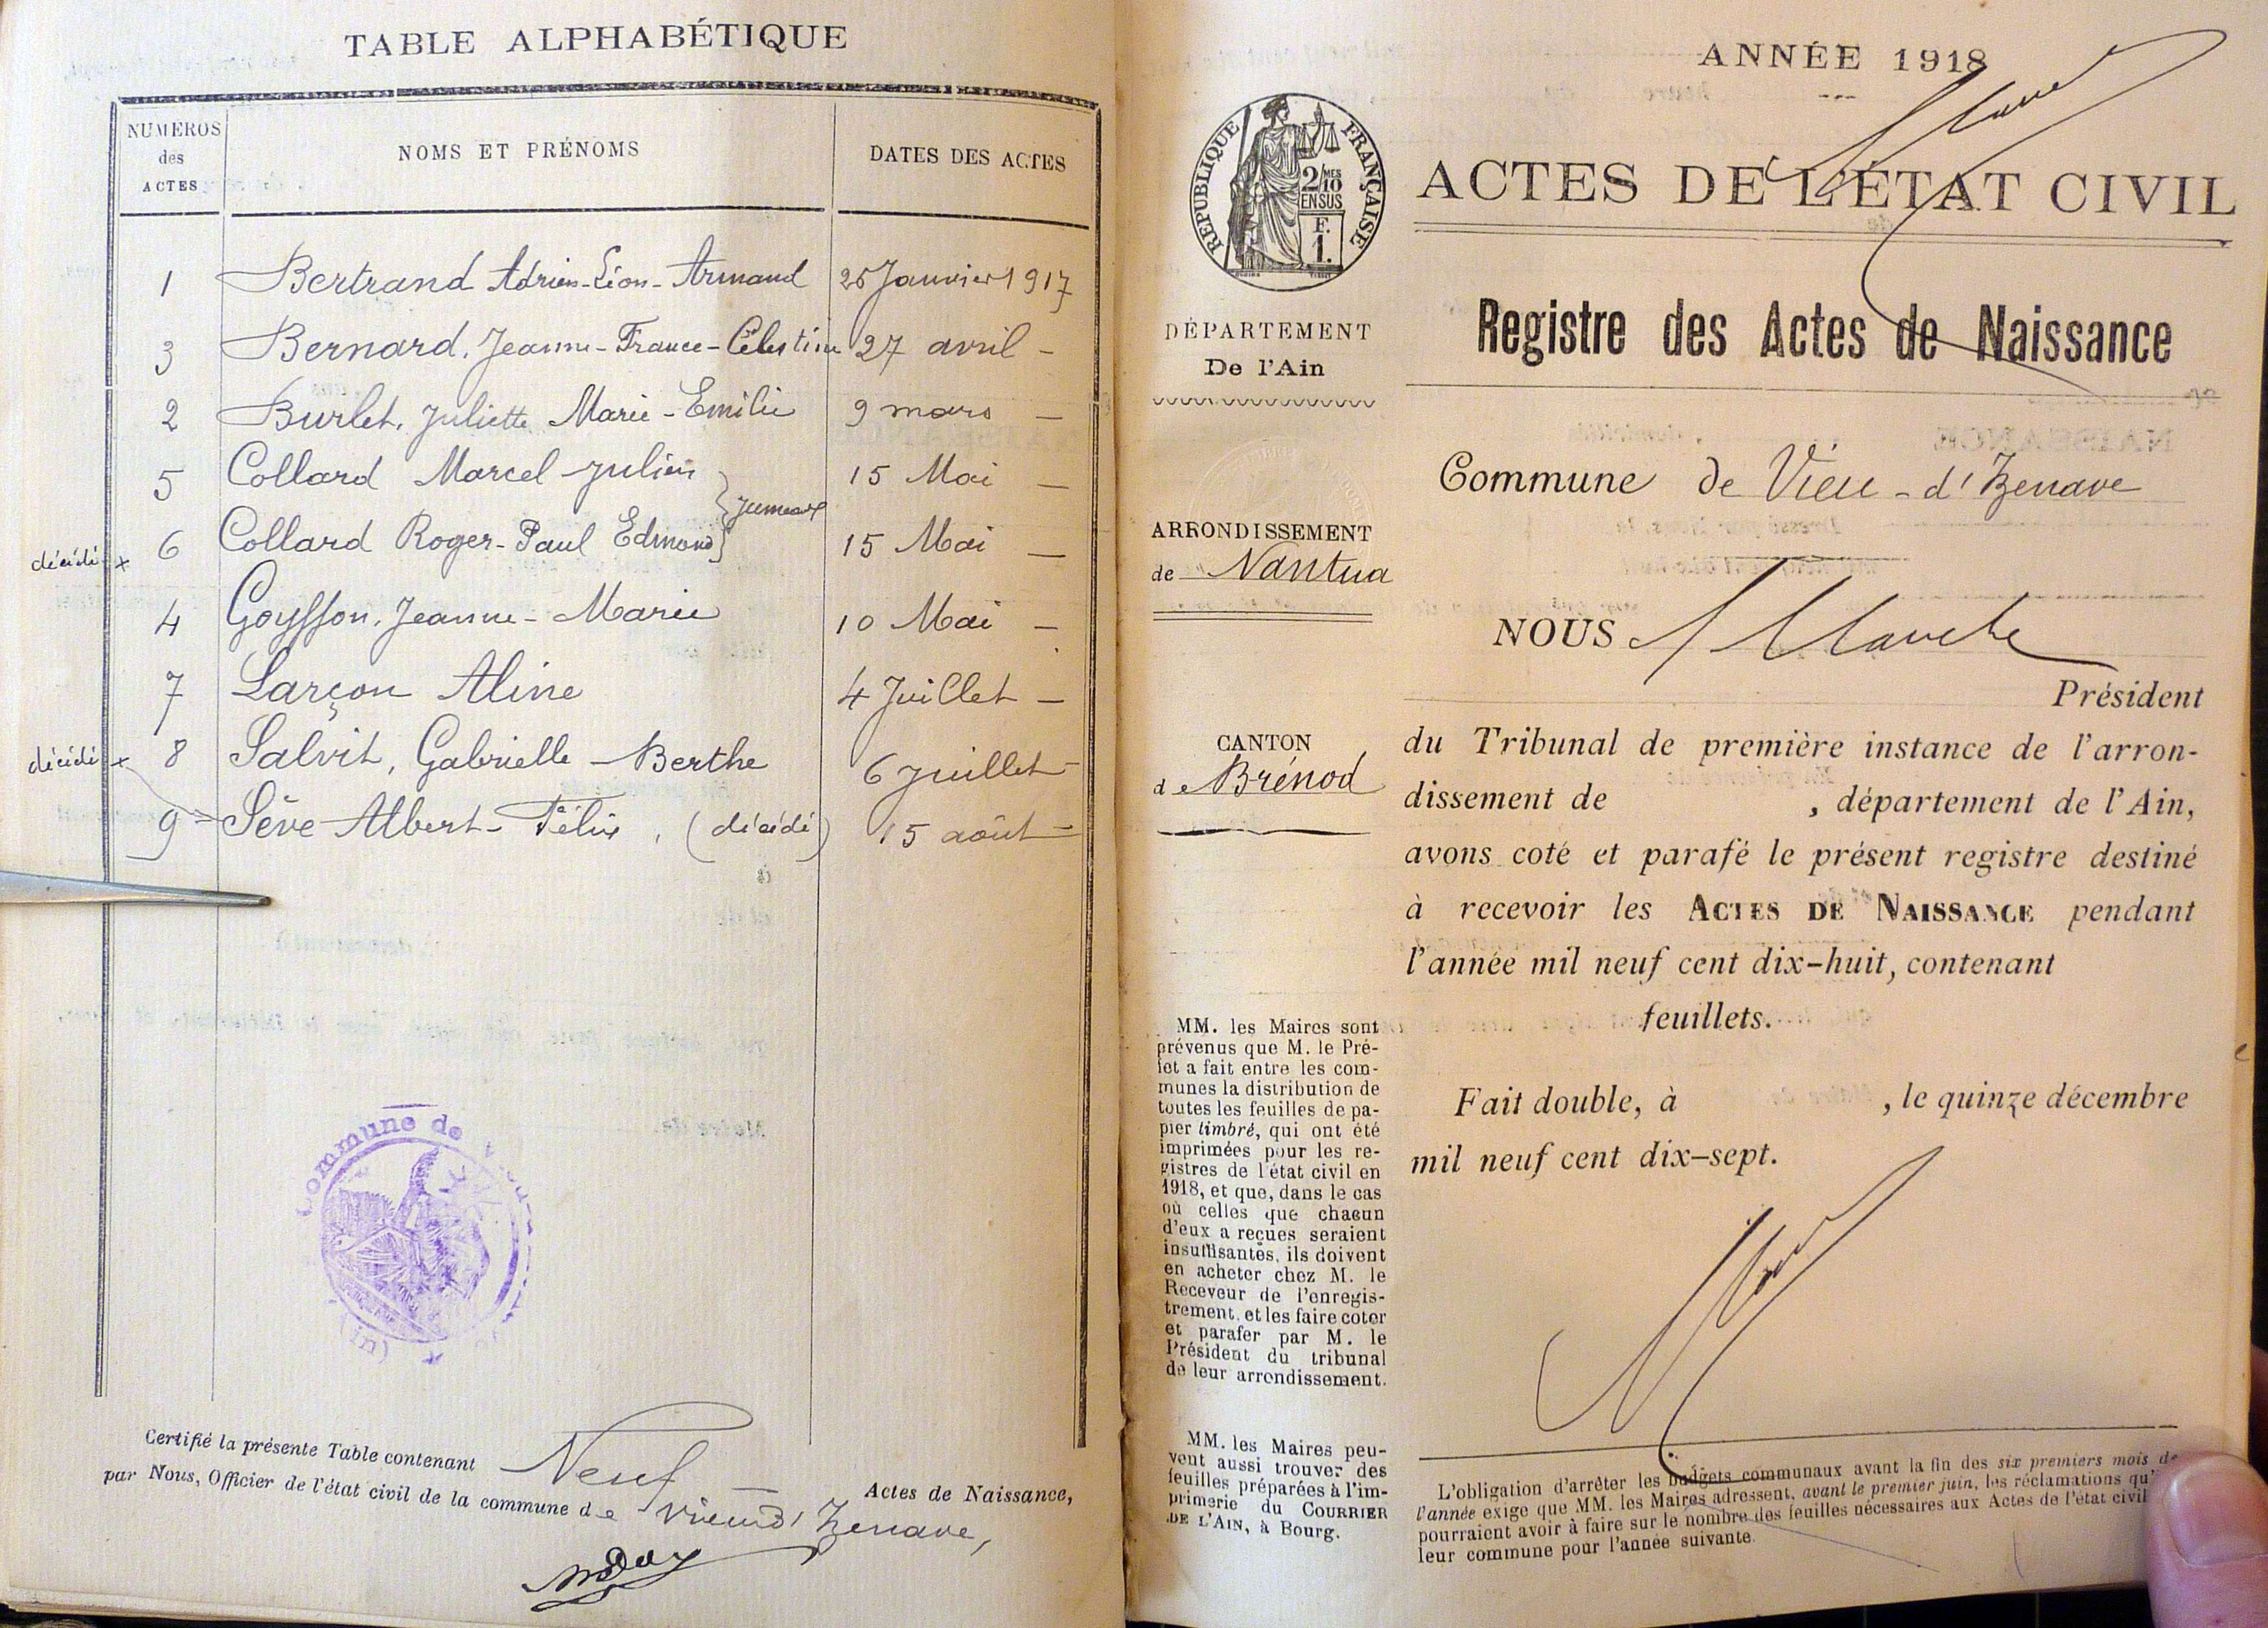 TABLE ALPHABÉTIQUE
NUMÉROS
des
ACTES
NOMS ET PRÉNOMS
DATES DES ACTES
1 Bertrand Adrien-Léon-Armand 25 Janvier 1917
3 Bernard, Jeanne-France-Célestine 27 avril -
2 Burlet, Juliette Marie-Emilie 9 mars -
5 Collard Marcel Julien 15 Mai -
} jumeaux
décédé x 6 Collard Roger-Paul Edmond 15 Mai -
4 Goysson, Jeanne-Marie 10 Mai -
7 Larçon Aline 4 Juillet -
décédé x 8 Salvit, Gabrielle-Berthe 6 Juillet -
9 Sève Albert-Félix, (décédé) 15 août -
Commune de
Certifié la présente Table contenant Neuf Actes de Naissance,
par Nous, Officier de l'état civil de la commune de Vieu d'Izenave,
ANNÉE 1918
RÉPUBLIQUE FRANÇAISE
2/10 MES
EN SUS
F.
1.
ACTES DE L'ÉTAT CIVIL
DÉPARTEMENT
De l'Ain
Registre des Actes de Naissance
Commune de Vieu-d'Izenave
ARRONDISSEMENT
de Nantua
NOUS
Président
CANTON
de Brénod
du Tribunal de première instance de l'arron-
dissement de , département de l'Ain,
avons coté et parafé le présent registre destiné
à recevoir les ACTES DE NAISSANCE pendant
l'année mil neuf cent dix-huit, contenant
feuillets.
Fait double, à , le quinze décembre
mil neuf cent dix-sept.
MM. les Maires sont
prévenus que M. le Pré-
fet a fait entre les com-
munes la distribution de
toutes les feuilles de pa-
pier timbré, qui ont été
imprimées pour les re-
gistres de l'état civil en
1918, et que, dans le cas
où celles que chacun
d'eux a reçues seraient
insuffisantes, ils doivent
en acheter chez M. le
Receveur de l'enregis-
trement, et les faire coter
et parafer par M. le
Président du tribunal
de leur arrondissement.
MM. les Maires peu-
vent aussi trouver des
feuilles préparées à l'im-
primerie du COURRIER
DE L'AIN, à Bourg.
L'obligation d'arrêter les budgets communaux avant la fin des six premiers mois de
l'année exige que MM. les Maires adressent, avant le premier juin, les réclamations qu'
pourraient avoir à faire sur le nombre des feuilles nécessaires aux Actes de l'état civil
leur commune pour l'année suivante.